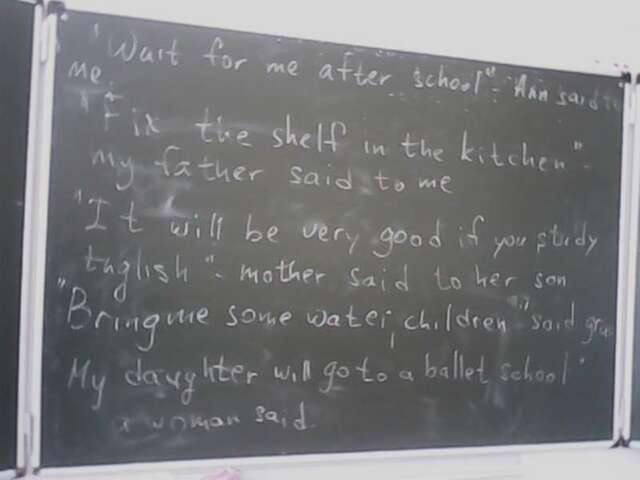 "Wait for me after school" - Ann said to
me.
"Fix the shelf in the kitchen" -
my father said to me
"It will be very good if you study
English" - mother said to her son
"Bring me some water, children" said
My daughter will go to a ballet school"
a woman said.